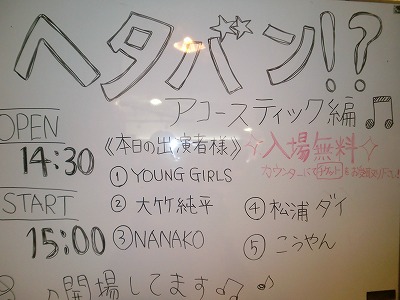 ヘタバン!?
アコースティック編♬
OPEN
14:30
START
15:00
《本日の出演者様》
① YOUNG GIRLS
② 大竹純平
③ NANAKO
④ 松浦 ダイ
⑤ こうやん
☆入場無料☆
カウンターにて
♪開場してます♫♪